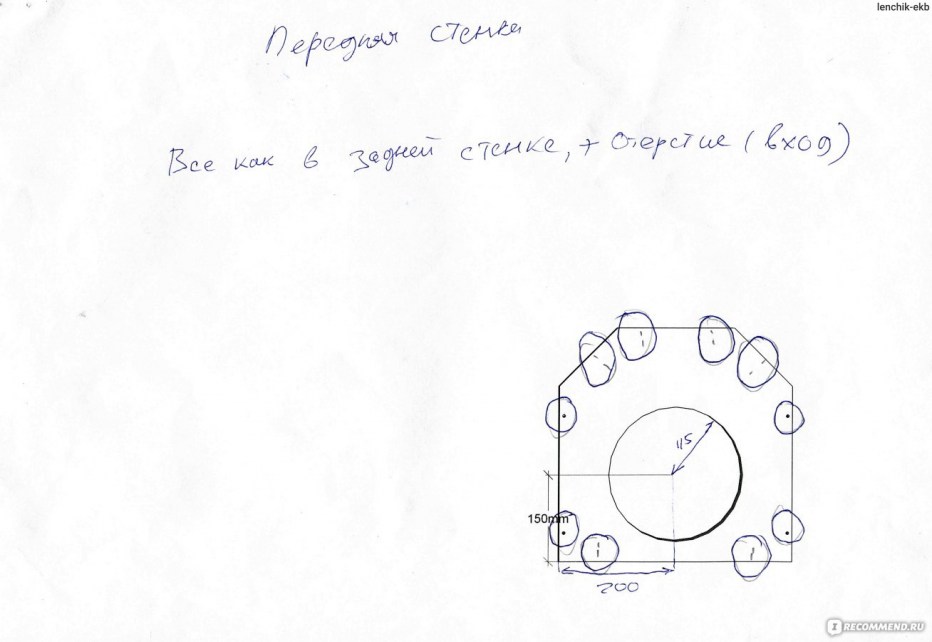 lenchik-ekb
Передняя стенка
Все как в задней стенке, + отерстие (вход)
115
150mm
200
IRECOMMEND.RU